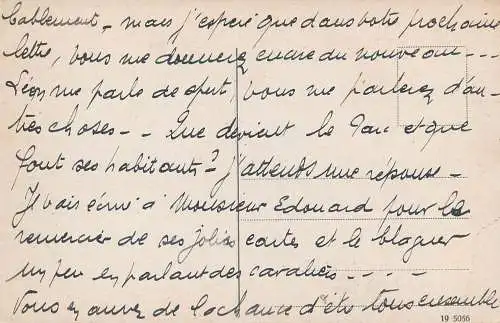 tablement - mais j'espère que dans votre prochaine
lettre, vous me donnerez encore du nouveau ---
Léon me parle de sport, vous me parlerez d'au-
tres choses -- Que devient le Parc et que
font ses habitants? j'attends une réponse -
Je vais écrire à Monsieur Edouard pour le
remercier de ses jolies cartes et le blaguer
un peu en parlant des cavaliers ----
Vous en avez de la chance d'être tous ensemble
19 5056